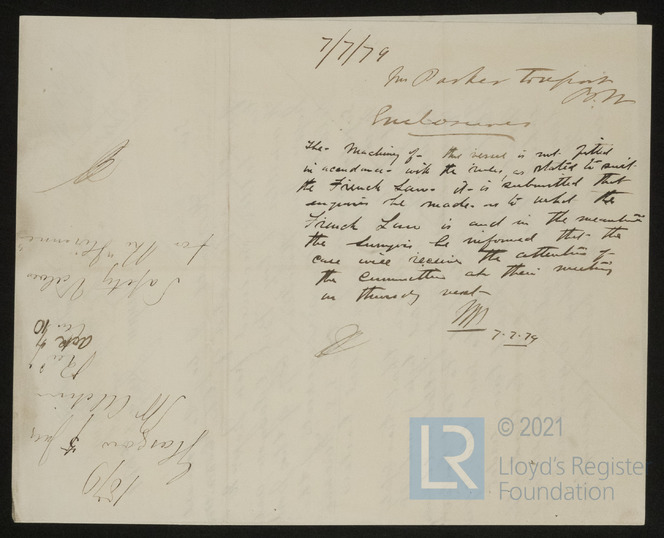 7/7/79
Mr Parker to report
B.W
Enclosures
The Machinery of this vessel is not fitted
in accordance with the rules, as stated to suit
the French Law. It is submitted that
inquiries be made as to what the
French Law is and in the meantime
the Surveyors be informed that the
case will receive the attention of
the Committee at their meeting
on Thursday next
7.7.79
1879
Glasgow 5 July
Mr
Safety Valves
for the
© 2021
LR
Lloyd's Register
Foundation